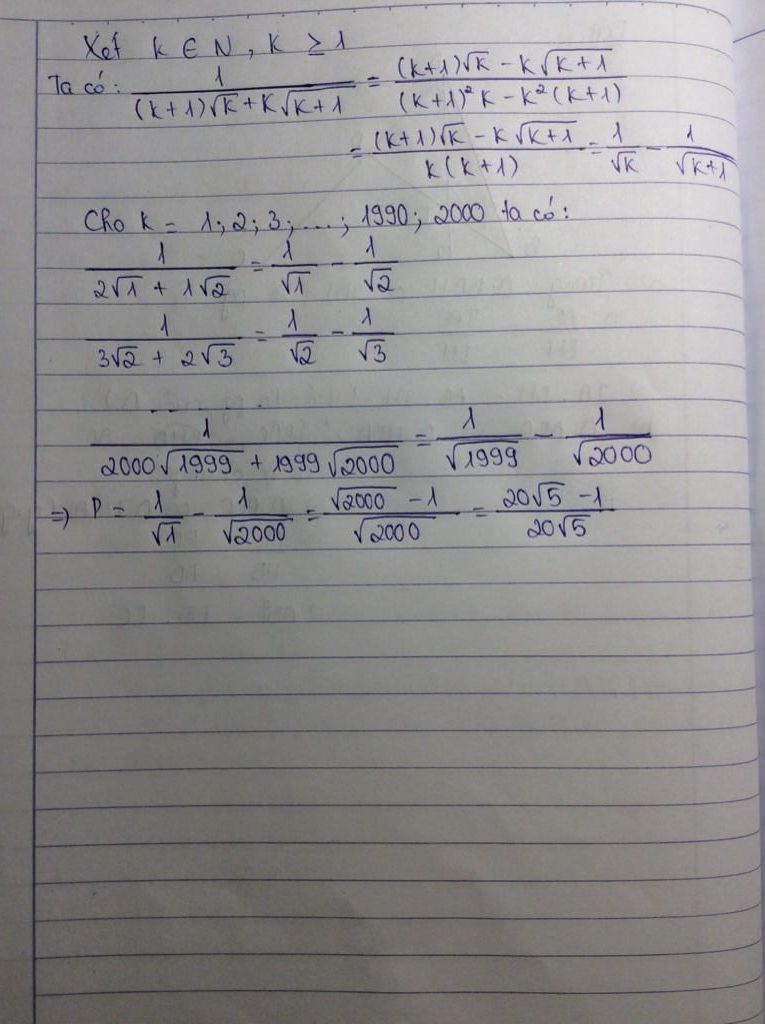 Xét k ∈ N, k ≥ 1
Ta có: 1/((k+1)√k + k√(k+1)) = ((k+1)√k - k√(k+1))/((k+1)²k - k²(k+1))
= ((k+1)√k - k√(k+1))/(k(k+1)) = 1/√k - 1/√(k+1)
Cho k = 1; 2; 3; ...; 1990; 2000 ta có:
1/(2√1 + 1√2) = 1/√1 - 1/√2
1/(3√2 + 2√3) = 1/√2 - 1/√3
.....
1/(2000√1999 + 1999√2000) = 1/√1999 - 1/√2000
⇒ P = 1/√1 - 1/√2000 = (√2000 - 1)/√2000 = (20√5 - 1)/(20√5)